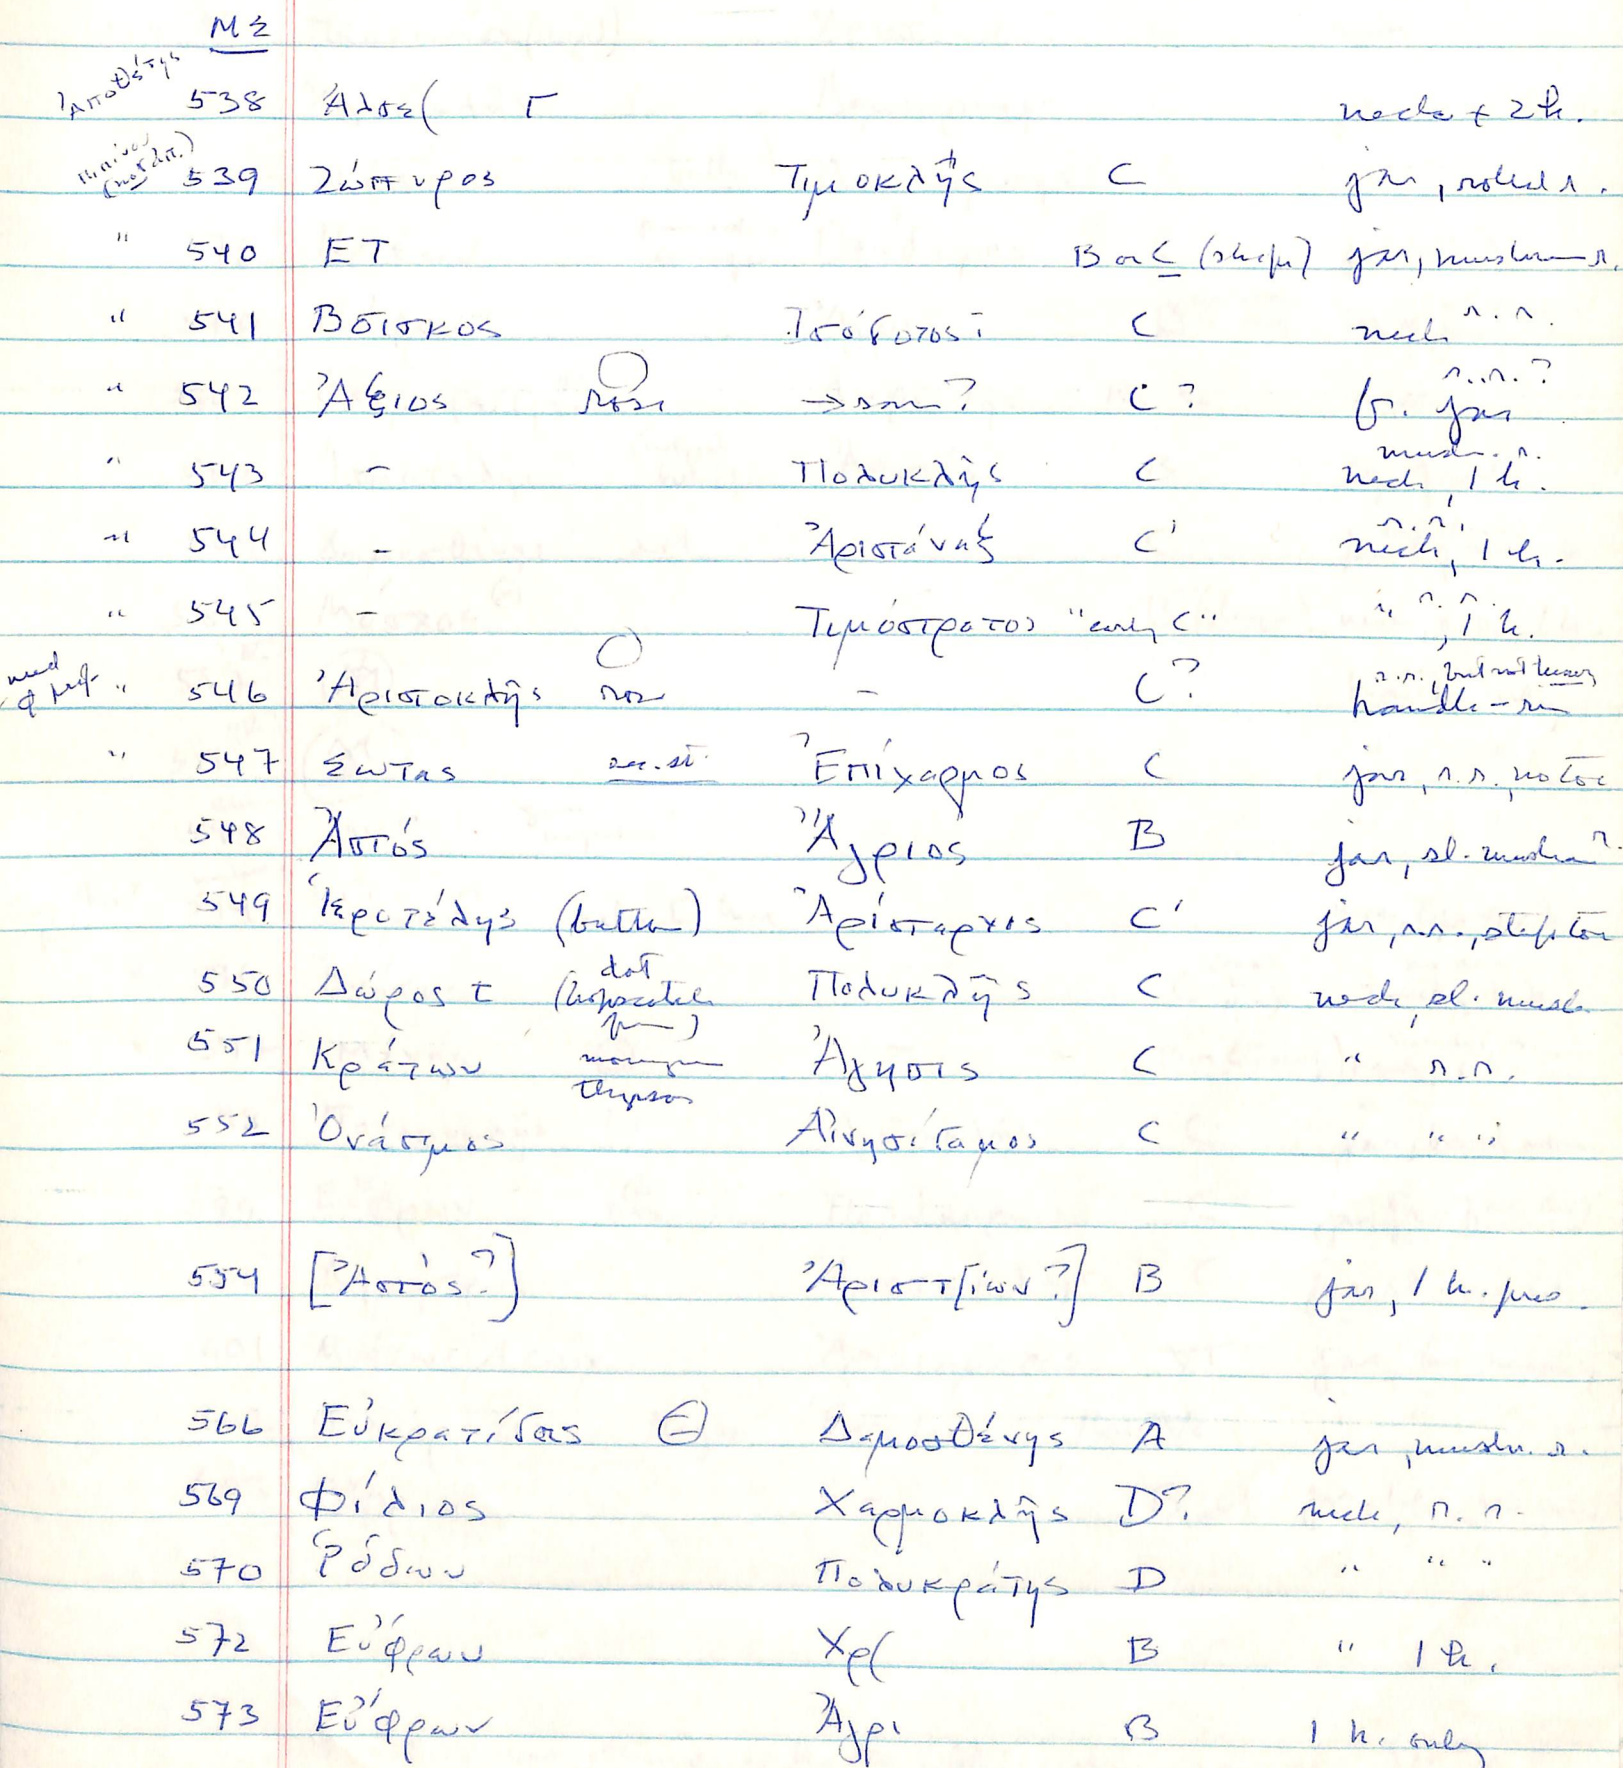 ΜΣ
Ἀποθέτης 538 Ἀλσε( Γ neck + 2 h.
539 Ζώπυρος Τιμοκλῆς C jar, rolled r.
" 540 ΕΤ B or C (shape) jar, mushroom r.
" 541 Βοισκος Ἰσόδοτος? C neck r.r.
" 542 Ἄξιος rose → same? C? fr. jar r.r.?
" 543 – Πολυκλῆς C neck, 1 h. mush. r.
" 544 – Ἀριστάναξ C' neck, 1 h. r.r.
" 545 – Τιμόστρατος "early C" " r.r., 1 h.
" 546 Ἀριστοκλῆς rose – C? handle – rim r.r., but not
" 547 Σωτας rec. st. Ἐπίχαρμος C jar, r.r., no toe
548 Ἀστός Ἄγριος B jar, sl. mushroom
549 Ἱεροτέλης (button) Ἀρίσταρχος C' jar, r.r., step toe
550 Δῶρος τ dot Πολυκλῆς C neck, sl. mush
551 Κράτων thyrsos Ἄγησις C " r.r.
552 Ὀνάσιμος Αἰνησίδαμος C " " "
554 [Ἀστός?] Ἀριστ[ίων?] B jar, 1 h. pres.
566 Εὐκρατίδας Θ Δαμοσθένης A jar, mush. r.
569 Φίλιος Χαρμοκλῆς D? neck, r. r.
570 Ῥόδων Πολυκράτης D " " "
572 Εὔφρων Χρ( B " 1 h.
573 Εὔφρων Ἄγρι B 1 h. only